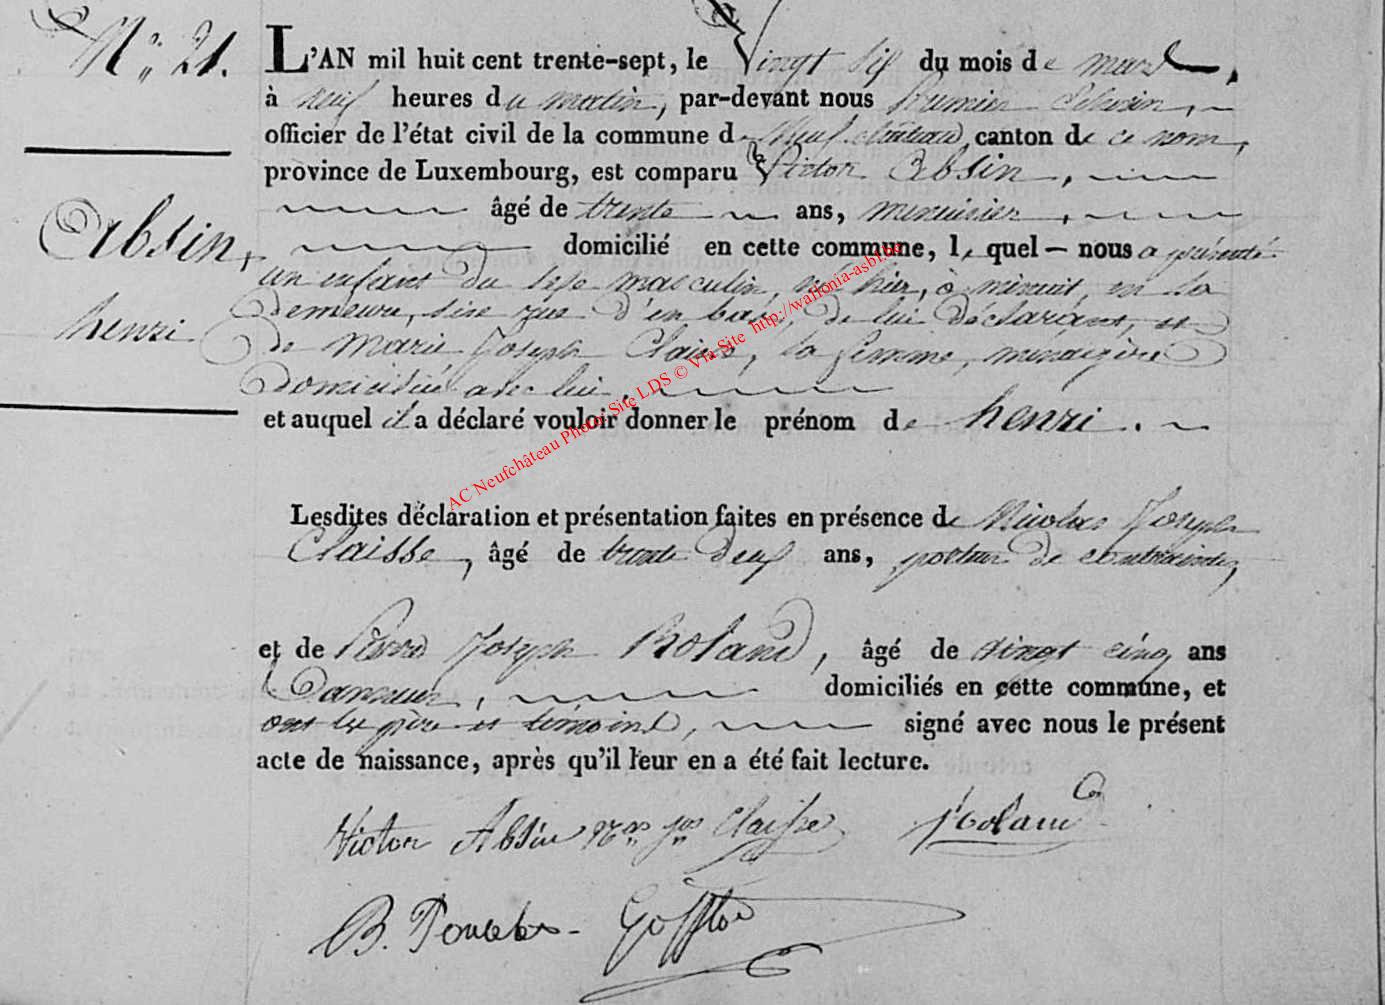 N° 21.
L'AN mil huit cent trente-sept, le Vingt six du mois de mars,
à neuf heures du matin, par-devant nous premier Echevin,
officier de l'état civil de la commune de Neufchâteau, canton de ce nom,
province de Luxembourg, est comparu Victor Absin,
âgé de trente ans, menuisier,
Absin,
henri
domicilié en cette commune, lequel nous a présenté
un enfant du sexe masculin, né hier, à minuit, en sa
demeure, sise rue d'en bas, de lui déclarant, et
de Marie Joseph Claisse, sa femme, ménagère
domiciliée avec lui,
et auquel il a déclaré vouloir donner le prénom de henri.
Lesdites déclaration et présentation faites en présence de Nicolas Joseph
Claisse, âgé de trente deux ans, porteur de contraintes,
et de Pierre Joseph Roland, âgé de vingt cinq ans
Tanneur, domiciliés en cette commune, et
ont les père et témoins, signé avec nous le présent
acte de naissance, après qu'il leur en a été fait lecture.
Victor Absin Nas Jos Claisse Roland
B. Poncelet
AC Neufchâteau Photo Site LDS © Via Site http://wallonia-asbl.be